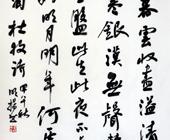 暮雲收盡溢清
寒銀漢無聲
盤此生此夜不
明月明年何
杜牧诗 甲午秋